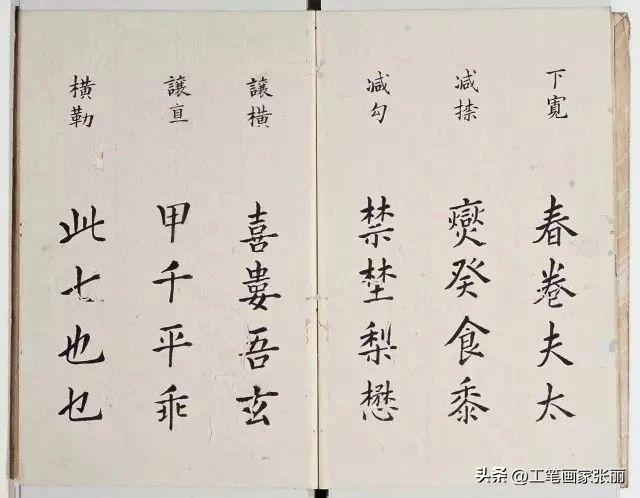 下寬
春卷夫太
减捺
燮癸食黍
减勾
禁埜梨懋
讓橫
喜婁吾玄
讓直
甲千平乖
橫勒
此七也乜
头条 @工笔画家张丽